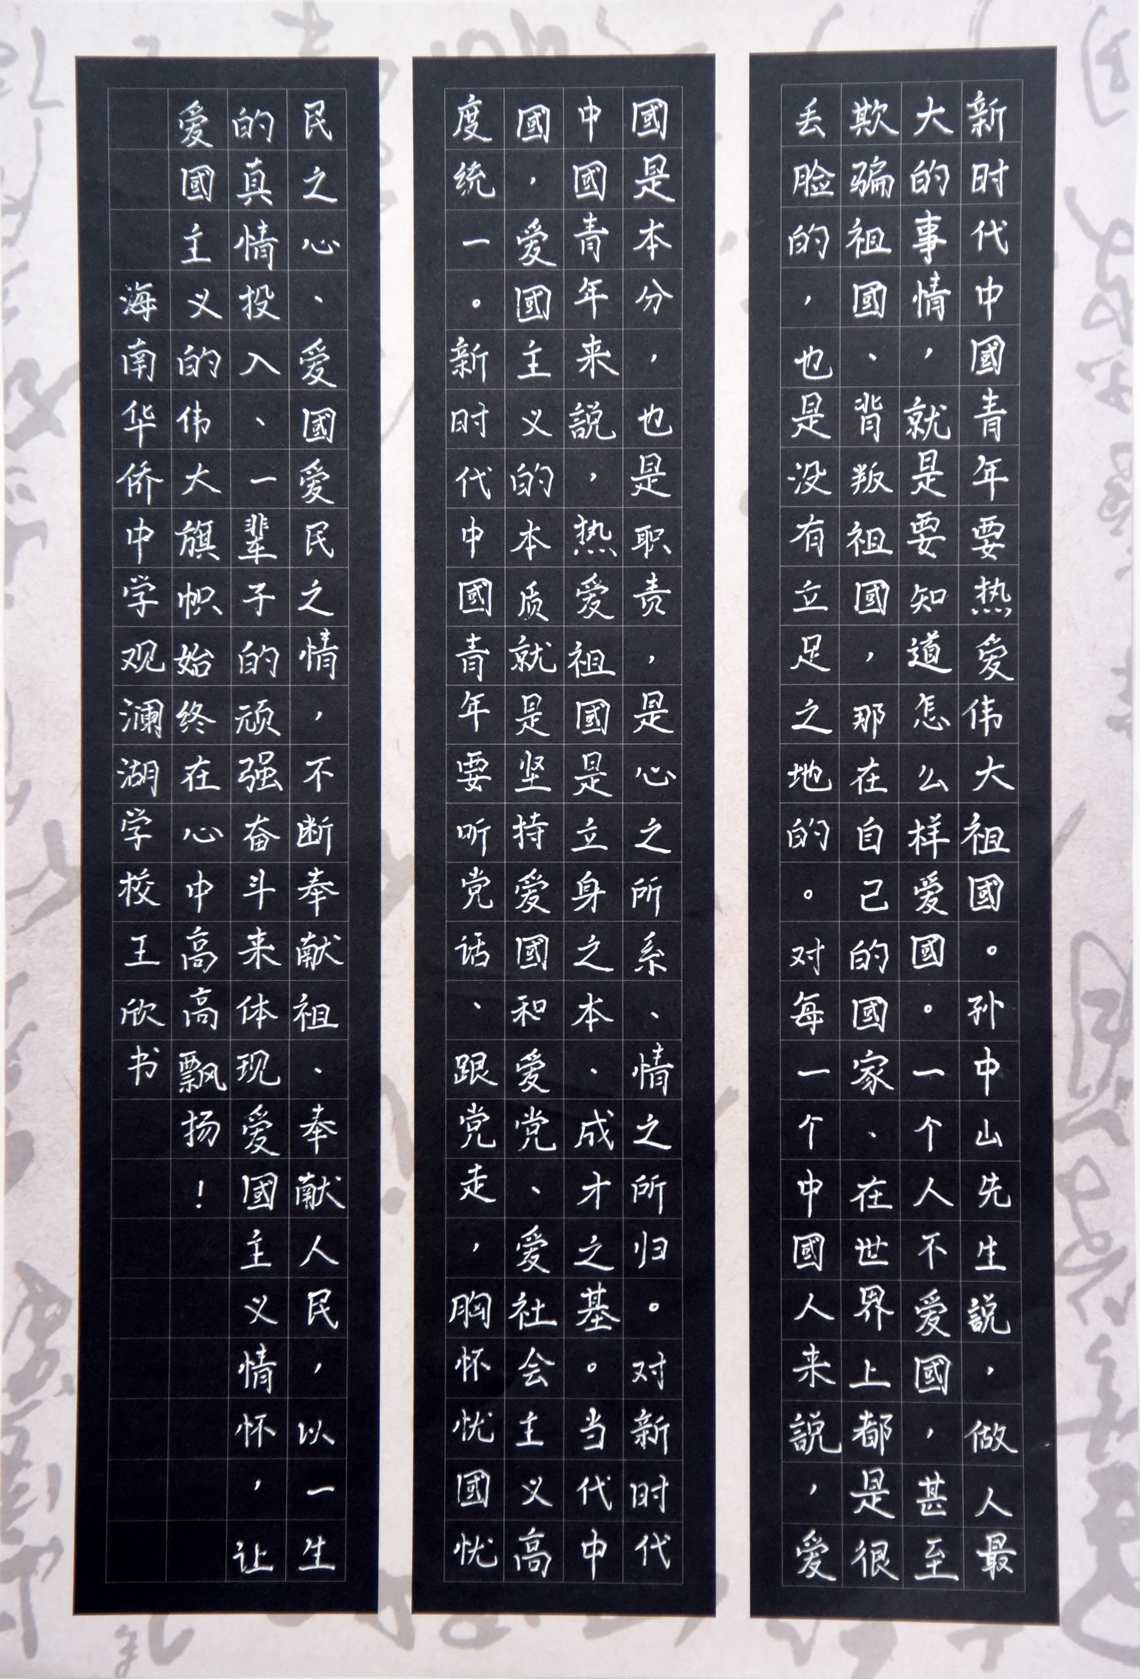 新时代中國青年要热爱伟大祖國。孙中山先生説，做人最
大的事情，就是要知道怎么样爱國。一个人不爱國，甚至
欺骗祖國、背叛祖國，那在自己的國家、在世界上都是很
丢脸的，也是没有立足之地的。对每一个中國人来説，爱
國是本分，也是职责，是心之所系、情之所归。对新时代
中國青年来説，热爱祖國是立身之本、成才之基。当代中
國，爱國主义的本质就是坚持爱國和爱党、爱社会主义高
度统一。新时代中國青年要听党话、跟党走，胸怀忧國忧
民之心、爱國爱民之情，不断奉献祖、奉献人民，以一生
的真情投入、一辈子的顽强奋斗来体现爱國主义情怀，让
爱國主义的伟大旗帜始终在心中高高飘扬！
海南华侨中学观澜湖学校王欣书